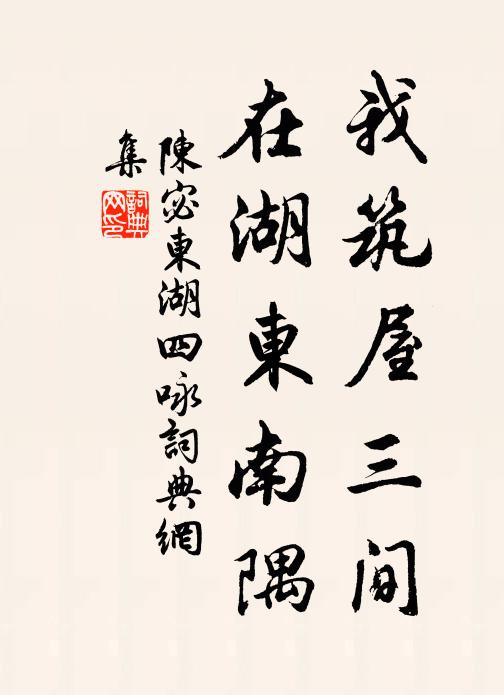 我筑屋三间
在湖東南隅
陳宓東湖四咏詞典網
集
詞典网印